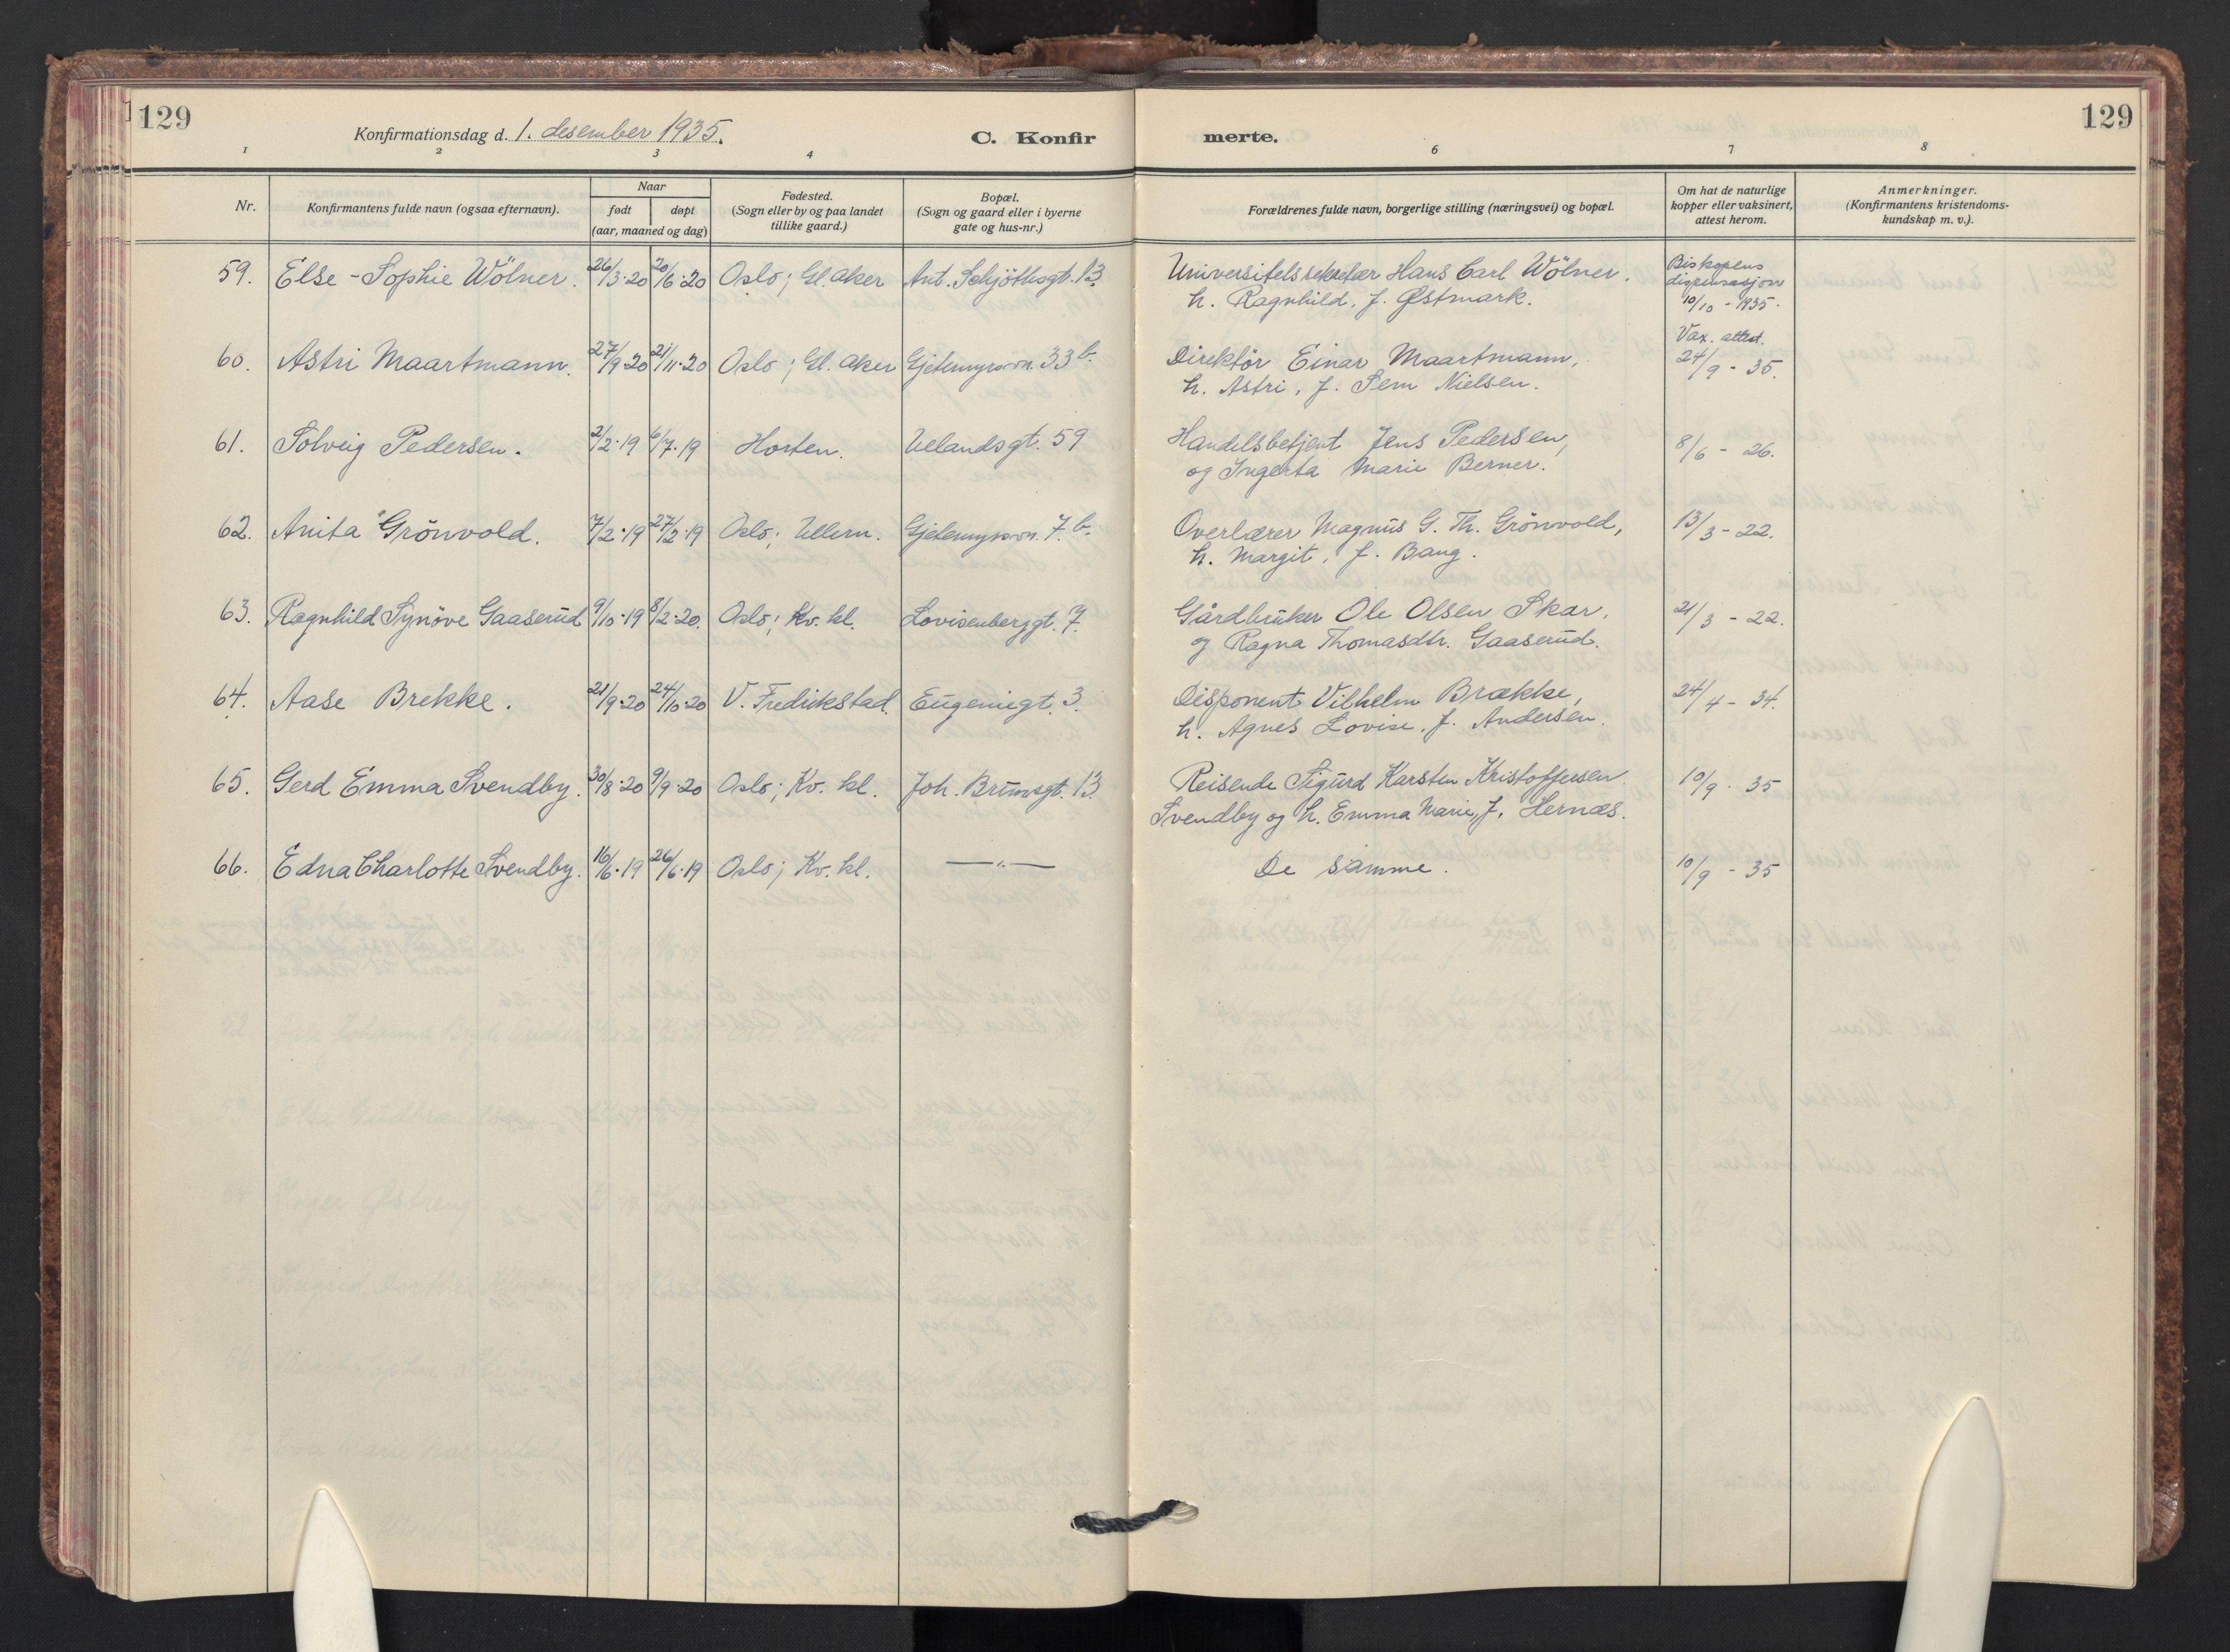 129
Konfirmationsdag d. 1. desember 1935.
C. Konfir
merte.
129
1 2 3 4 6 7 8
Nr.
Konfirmantens fulde navn (ogsaa efternavn).
Naar
født døpt
(aar, maaned og dag)
Fødested.
(Sogn eller by og paa landet
tillike gaard.)
Bopæl.
(Sogn og gaard eller i byerne
gate og hus-nr.)
Forældrenes fulde navn, borgerlige stilling (næringsvei) og bopæl.
Om hat de naturlige
kopper eller vaksinert,
attest herom.
Anmerkninger.
(Konfirmantens kristendoms-
kundskap m. v.).
59. Else-Sophie Wölner. 26/3·20 20/6·20 Oslo; Gl. Aker Ant. Schjöthsgt. 13. Universitetssekretær Hans Carl Wölner. Biskopens
h. Ragnhild, f. Østmark. dispensasjon
10/10 - 1935.
60. Astri Maartmann. 27/9·20 21/11·20 Oslo; Gl. Aker Gjetemyrsvn. 33 b. Direktör Einar Maartmann, Vax. attest.
h. Astri, f. Sem Nielsen. 24/9 - 35.
61. Solveig Pedersen. 2/2·19 6/7·19 Horten. Uelandsgt. 59 Handelsbetjent Jens Pedersen, 8/6 - 26.
og Ingerta Marie Berner.
62. Anita Grönvold. 7/2·19 27/3·19 Oslo; Ullern. Gjetemyrsvn. 7. b. Overlærer Magnus G. Th. Grönvold, 13/3 - 22.
h. Margit, f. Bang.
63. Ragnhild Synöve Gaaserud 9/10·19 8/2·20. Oslo; Kv. kl. Lovisenberggt. 7. Gårdbruker Ole Olsen Skar, 21/3 - 22.
og Ragna Thomasdtr. Gaaserud.
64. Aase Brekke. 21/9·20 24/10·20 V. Fredrikstad. Eugeniegt. 3. Disponent Vilhelm Brække, 24/4 - 34.
h. Agnes Lovise, f. Andersen.
65. Gerd Emma Svendby. 30/8·20 9/9·20 Oslo; Kv. kl. Joh. Brunsgt. 13. Reisende Sigurd Karsten Kristoffersen 10/9 · 35
Svendby og h. Emma Marie, f. Hernæs.
66. Edna Charlotte Svendby. 16/6·19 26/6·19 Oslo; Kv. kl. —"— De samme. 10/9 - 35